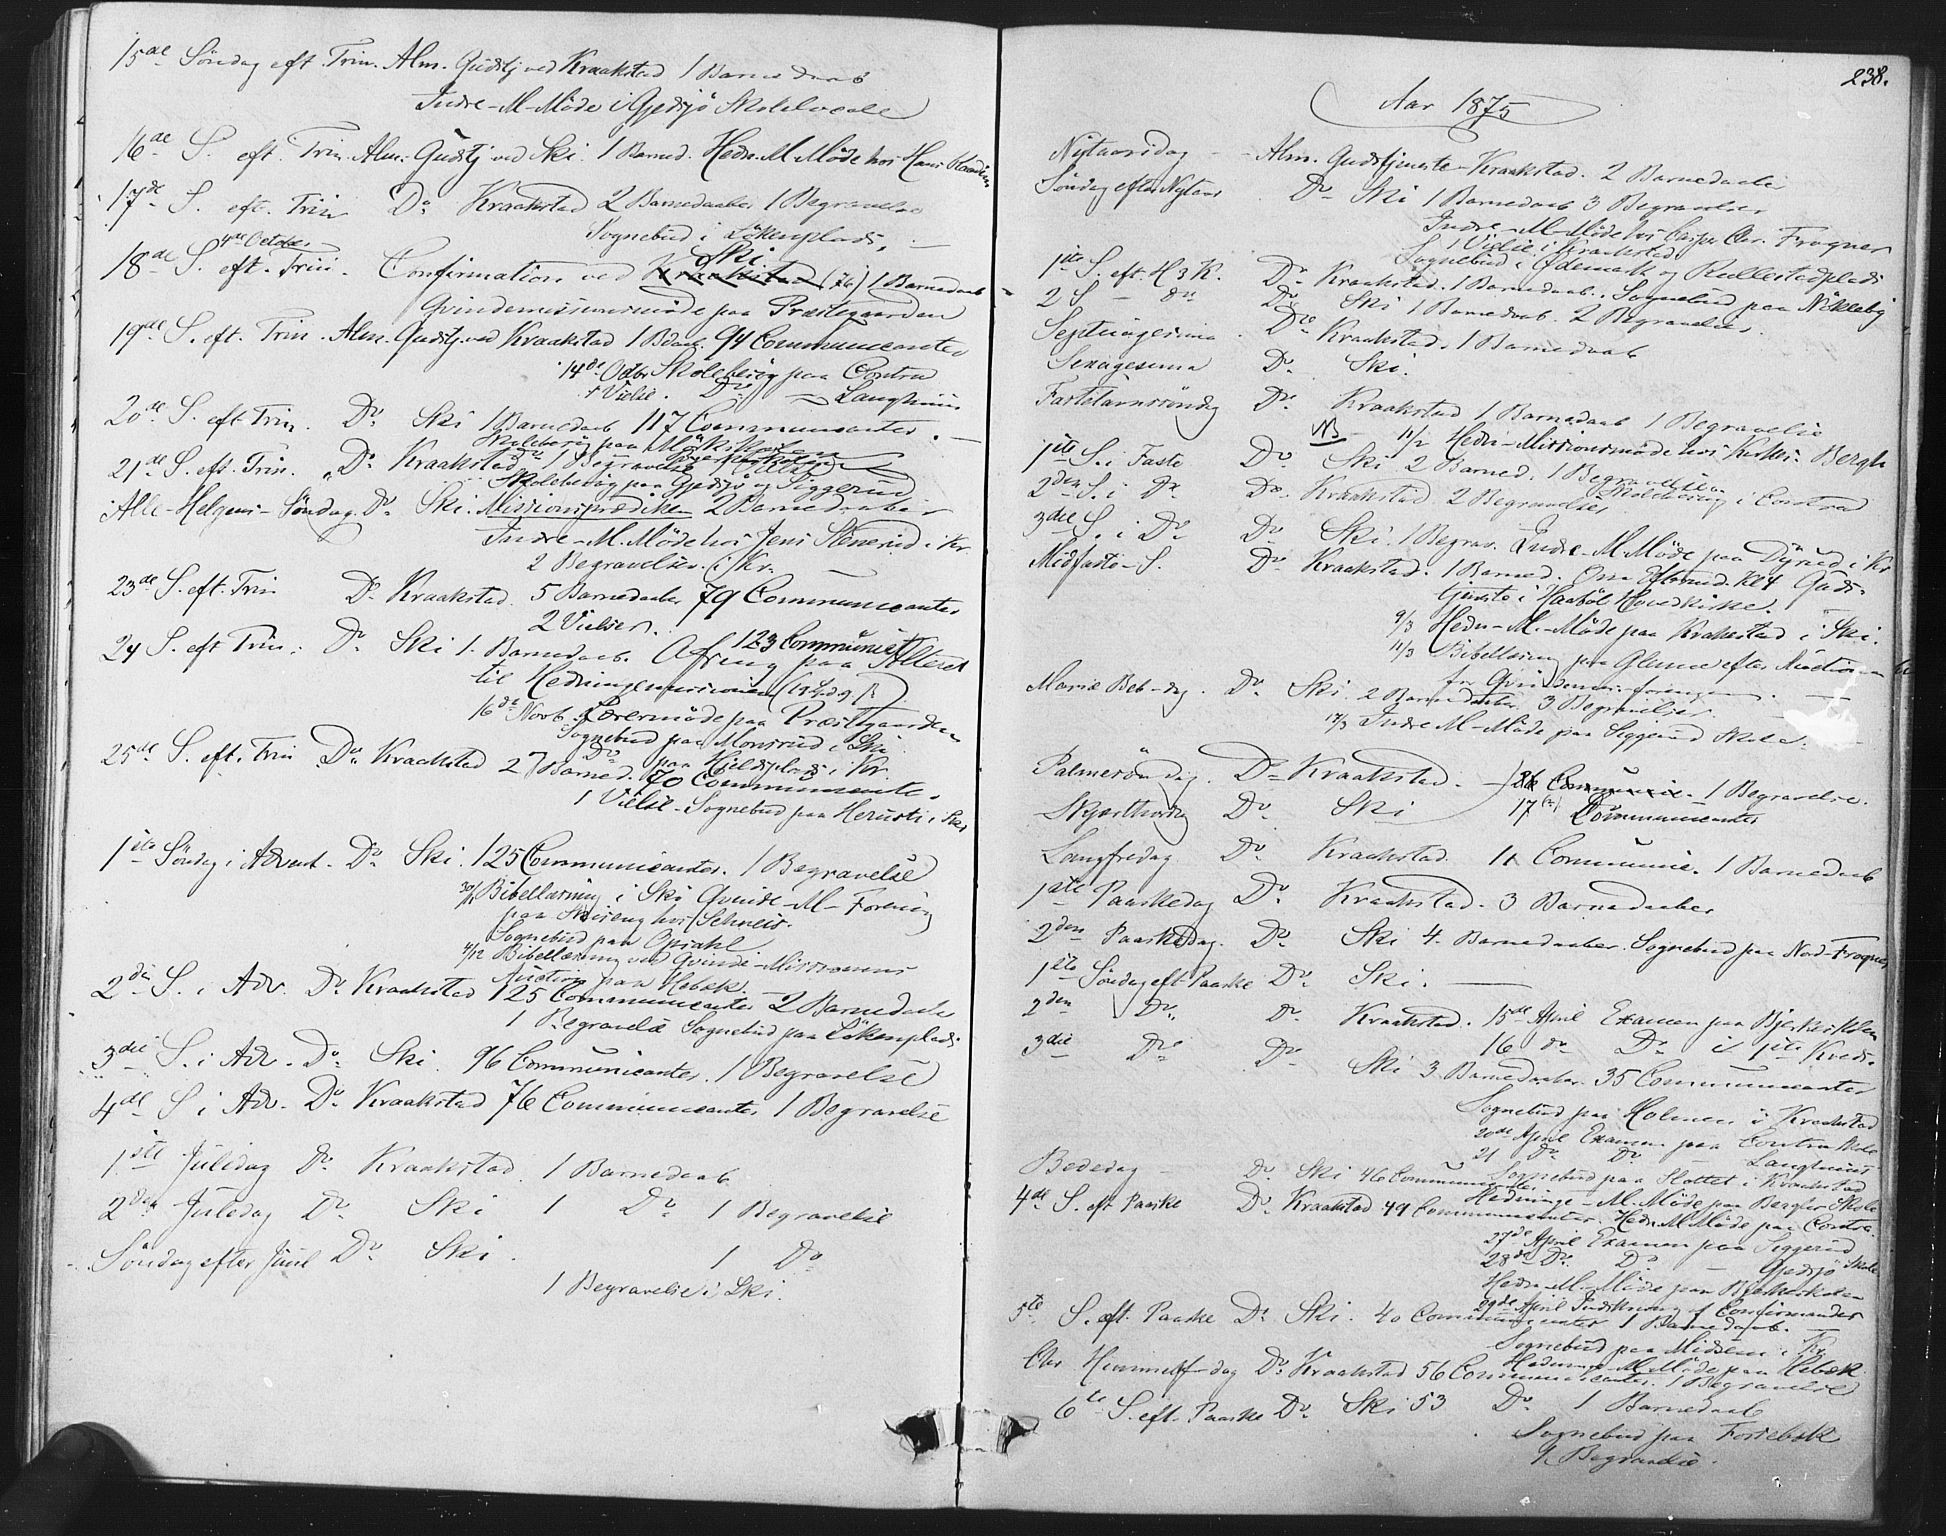 15de Søndag eft. Trin. Alm. Gudstj ved Kraakstad 1 Barnedaab
Indre-M-Møde i Gjedsjø Skolelocale
16de S. eft. Trin. Alm. Gudstj ved Ski. 1 Barned. Hedn. M. Møde hos Hans
17de S. eft. Trin Do Kraakstad 2 Barnedaaber 1 Begravelse
Sognebud i Løkenplads.
4de October
18de S. eft. Trin. Confirmation ved Kraakstad Ski. (76) 1 Barnedaab
Qvindemissionsmøde paa Præstegaarden
19de S. eft. Trin. Alm. Gudstj. ved Kraakstad 1 Bdaab. 94 Communicanter
14de Octbr Skolebesøg paa Contra
1 Vielse. Do - Langhuus
20de S. eft Trin. Do Ski 1 Barnedaab 117 Communicanter.
Skolebesøg paa
21de S. eft. Trin. Do Kraakstad 1 Begravelse
Skolebesøg paa Gjedsjø og Siggerud
Alle-Helgens-Søndag. Do Ski. Missionsprædiken 2 Barnedaaber
Indre-M. Møde hos Jens Stenerud i Kr.
2 Begravelser i Kr.
23de S. eft. Trin Do Kraakstad. 5 Barnedaaber 79 Communicanter
2 Vielser.
24 S. eft Trin. Do Ski 1. Barnedaab. 123 Communic.
Ofring paa Alteret
til Hedningemissionen
16de Novb. Lærermøde paa Præstegaarden
Sognebud paa Monsrud i Ski
Do paa Hjeldsplads i Kr.
25de S. eft. Trin Do Kraakstad 2 Barned. 70 Communicanter
1 Vielse. Sognebud paa i Ski
1ste Søndag i Advent. Do Ski. 125 Communicanter. 1 Begravelse
Bibellæsning i Ski Qvinde-M-Forening
paa hos
Sognebud paa Opsahl
4/12 Bibellæsning ved Qvinde-Missionens
Auction paa Hebæk.
2den S. i Adv. Do Kraakstad 125 Communicanter 2 Barnedaab
1 Begravelse Sognebud paa Løkenplads
3die S. i Adv. Do Ski. 96 Communicanter. 1 Begravelse
4de S i Adv. Do Kraakstad 76 Communicanter 1 Begravelse
1ste Juledag Do Kraakstad. 1 Barnedaab
2den Juledag Do Ski 1 Do 1 Begravelse
Søndag efter Juul Do Ski. 1 Do
1 Begravelse i Ski.
238.
Aar 1875
Nytaarsdag - Alm. Gudstjeneste - Kraakstad. 2 Barnedaaber
Søndag efter Nytaar Do Ski 1 Barnedaab 3 Begravelser
Indre-M-Møde hos Casper Chr. Frogner
1 Vielse i Kraakstad
Sognebud i Ødemark og Rullestadplads
1ste S. eft. H 3 K. Do Kraakstad. 1 Barnedaab. Sognebud paa Nikleby
2 S - do Do Ski 1 Barnedaab. 2 Begravelser.
Septuagesima Do Kraakstad. 1 Barnedaab
Sexagesima Do Ski.
Fastelavnssøndag Do Kraakstad 1 Barnedaab 1 Begravelse
NB 11/2 Hedn-Missionsmøde hos Kirkes. Bergh
1ste S. i Faste Do Ski 2 Barned. 1 Begravelse
2den S. i Do Do Kraakstad 2 Begravelser Skolebesøg i Contra
3die S. i Do Do Ski. 1 Begrav. Indre-M. Møde paa Dyrud i Kr
Midfaste-S. Do Kraakstad. 1 Barned. Kl 4 Guds-
tjeneste i Haabøl Hovedkirke.
9/3 Hedn-M.-Møde paa Krakstad i Ski.
11/3 Bibellæsning paa Glenne efter Auction
for Qvindemis-foreningen.
Mariæ Beb-dg. Do Ski. 2 Barnedaaber 3 Begravelser.
17/3 Indre M-Møde paa Siggerud Skole.
Palmesøndag. Do Kraakstad. Communic. 1 Begravelse.
Skjærthorsdg Do Ski 17 Communicanter
Langfredag Do Kraakstad. 11 Communic. 1 Barnedaab
1ste Paaskedag Do Kraakstad. 3 Barnedaaber
2den Paaskedag. Do Ski 4. Barnedaaber. Sognebud paa Nord-Frogner
1ste Søndag eft Paaske Do Ski.
2den Do Do Kraakstad. 15de April Examen paa Bjerkeskolen
16 do Do i 1ste Kreds.
3die Do Do Ski 3 Barnedaaber. 35 Communicanter
Sognebud paa Holmen i Kraakstad
20de April Examen paa Contra Skole
21 Do Do - Langhuus
Sognebud paa Slottet i Kraakstad
Bededag - Do Ski 46 Communicanter
Hedninge-M. Møde paa Skole
4de S. eft Paaske Do Kraakstad 49 Communicanter. Hedn. M. Møde paa Contra
27de April Examen paa Siggerud
28de Do. Do - Gjedsjø Skole
Hedn-M-Møde paa Bjerkeskolen
29de April Indskrivning af Confirmander
5te S. eft. Paaske Do Ski. 40 Communicanter 1 Barnedaab.
Sognebud paa Midsem i Kr
Hedninge-M. Møde paa Hebæk
Chr Himmelf-dag Do Kraakstad 56 Communicanter. 1 Begravelse
6te S. eft. Paaske Do Ski 53 Do 1 Barnedaab
Sognebud paa
Begravelse.